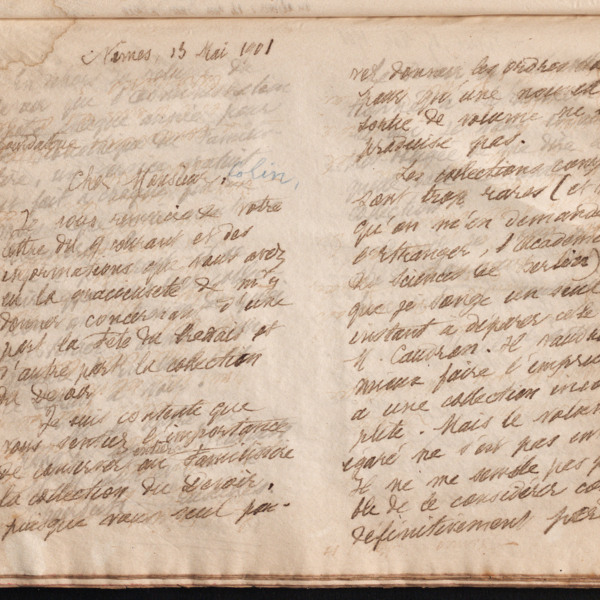 Nimes, 13 Mai 1901
Cher Monsieur Colin,
Je vous remercie de votre
lettre du 9 courant et des
informations que vous avez
eu la gracieuseté de m'y
donner concernant d'une
part la fête du travail et
d'autre part la collection
du Devoir.
Je suis contente que
vous sentiez l'importance
de conserver au Familistère entière
la collection du Devoir.
puisque vous seul pou-
rel donner les ordres
pour qu'une nouvel
sortie de volume ne
produise pas.
Les collections comp
sont trop rares (et
qu'on m'en demande
l'étranger, l'Académ
des Sciences de Berlin)
que je songe un seul
instant à déposer celle
M. Caudron. Il vaud
mieux faire l'emprun
à une collection incom
plète. Mais le volum
égaré ne s'est pas en
Il ne me semble pas p
ble de le considérer com
définitivement per